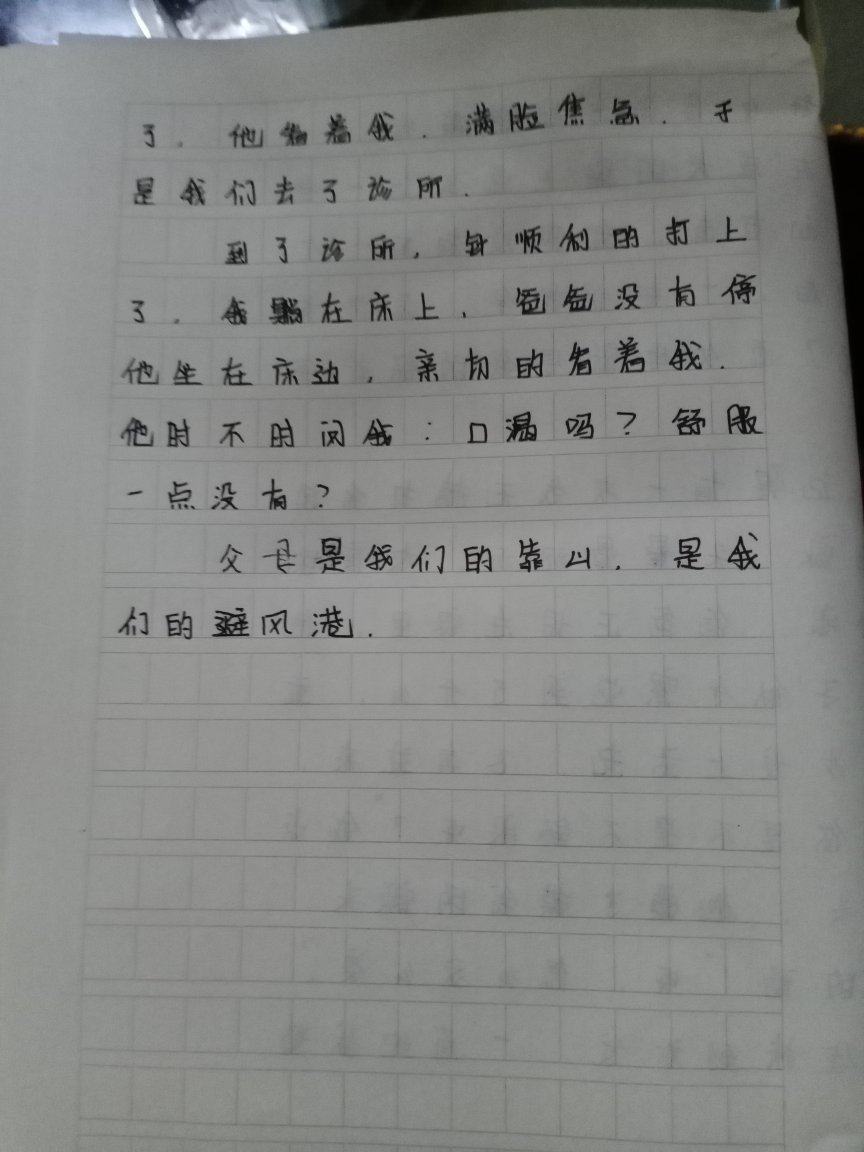 了。他看着我．满脸焦急．于
是我们去了诊所．
到了诊所，针顺利的打上
了．我躺在床上，爸爸没有停
他坐在床边，亲切的看着我．
他时不时问我：口渴吗？舒服
一点没有？
父母是我们的靠山．是我
们的避风港．